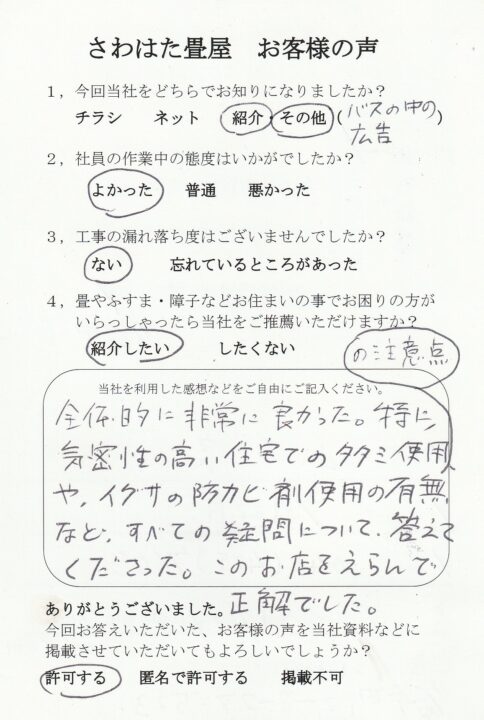 さわはた畳屋　お客様の声
1，今回当社をどちらでお知りになりましたか？
チラシ　ネット　紹介・その他（バスの中の広告）
2，社員の作業中の態度はいかがでしたか？
よかった　普通　悪かった
3，工事の漏れ落ち度はございませんでしたか？
ない　忘れているところがあった
4，畳やふすま・障子などお住まいの事でお困りの方が
いらっしゃったら当社をご推薦いただけますか？
紹介したい　したくない
の注意点
当社を利用した感想などをご自由にご記入ください。
全体的に非常に良かった。特に、
気密性の高い住宅でのタタミ使用
や，イグサの防カビ剤使用の有無
など，すべての疑問について，答えて
くださった。このお店をえらんで
正解でした。
ありがとうございました。
今回お答えいただいた、お客様の声を当社資料などに
掲載させていただいてもよろしいでしょうか？
許可する　匿名で許可する　掲載不可